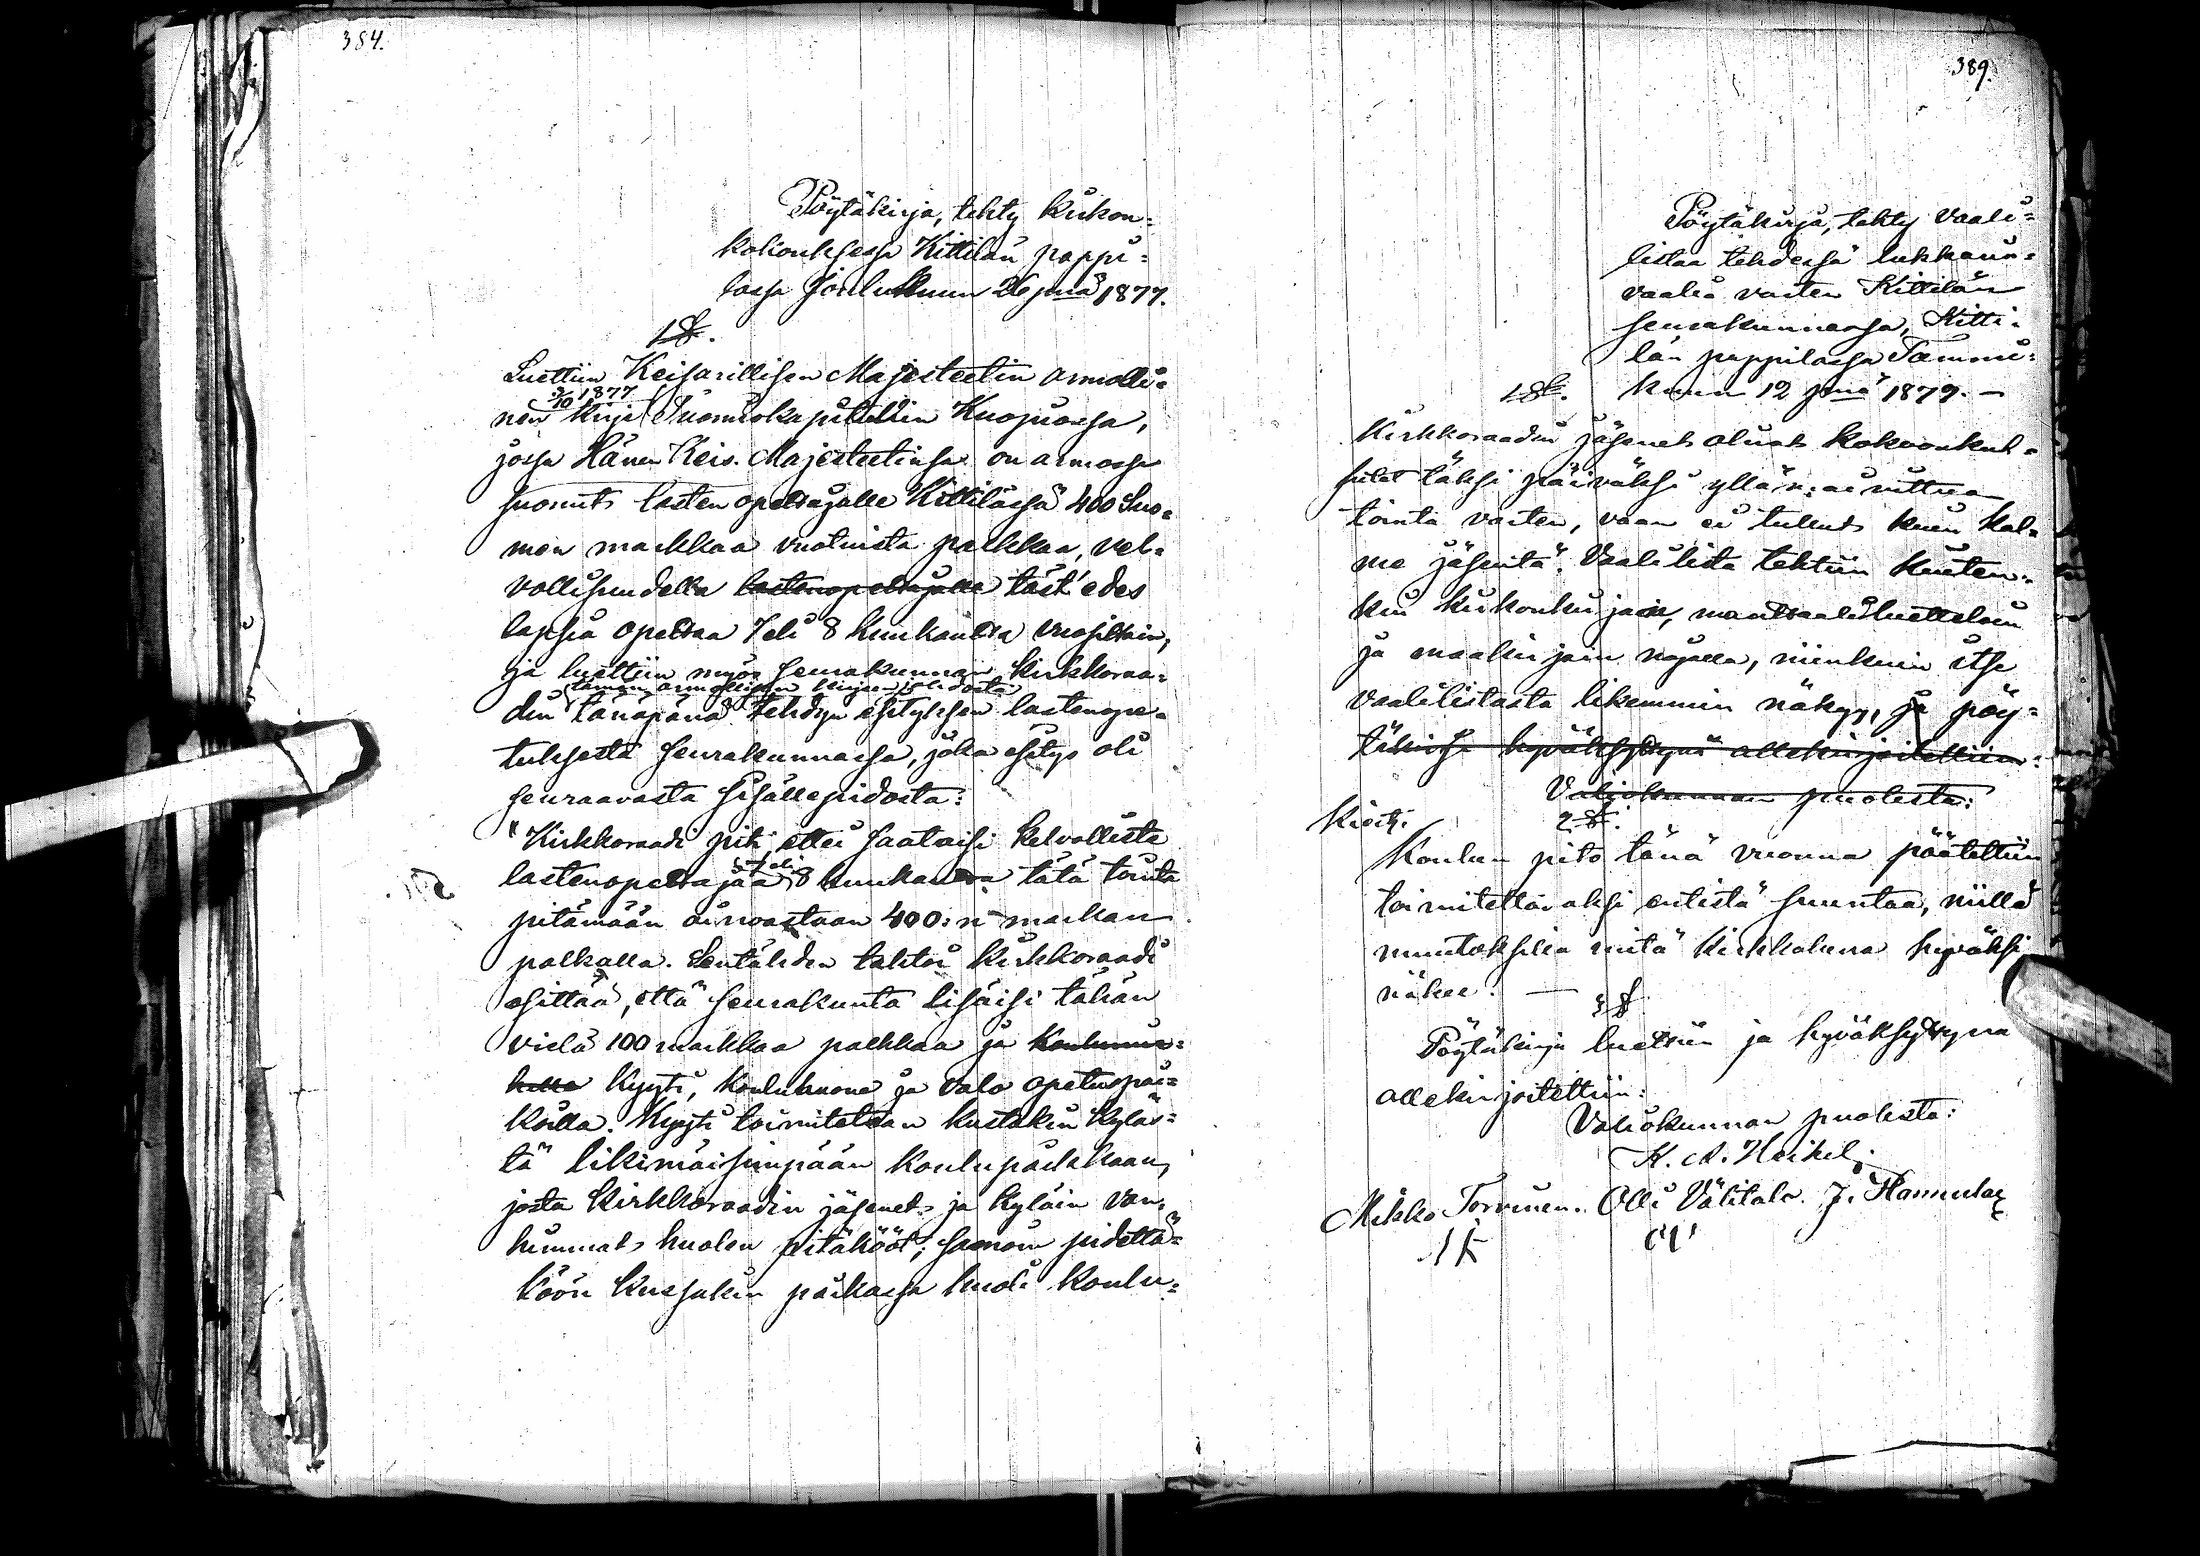 384.
Pöytäkirja, tehty kirkon-
kokouksessa Kittilän pappi-
lassa Joulukuun 26 pnä 1877.
1 §.
Luettiin Keisarillisen Majesteetin armolli-
3/10 1877
nen kirje Tuomiokapituliin Kuopiossa,
jossa Hänen Keis. Majesteetinsa on armossa
suonut lasten opettajalle Kittilässä 400 Suo-
men markkaa vuotuista palkkaa, vel-
vollisuudella lastenopettajalle täst'edes
lapsia opettaa 7 eli 8 kuukautta vuosittain,
ja luettiin myös seurakunnan kirkkoraa-
tämän armollisen kirjeen johdosta
din tänäpänä tehdyn esityksen lastenope-
tuksesta seurakunnassa, joka esitys oli
seuraavasta sisällepidosta:
"Kirkkoraadi piti, ettei saataisi kelvollista
7 eli
lastenopettajaa 8 kuukautta tätä tointa
pitämään ainoastaan 400:n markan
palkalla. Sentähden tahtoi Kirkkoraadi
esittää, että seurakunta lisäisi tähän
vielä 100 markkaa palkkaa ja
kyyti, kouluhuone ja valo opetuspai-
koilla. Kyyti toimitetaan kustakin kyläs-
tä likimäisimpään koulupaikkaan,
josta Kirkkoraadin jäsenet ja kyläin van-
himmat huolen pitäkööt; samoin pidettä-
köön kussakin paikassa huoli koulu-
389.
Pöytäkirja, tehty vaali-
listaa tehdessä lukkarin-
vaalia vasten Kittilän
seurakunnassa, Kitti-
län pappilassa Tammi-
1 §. kuun 12 pnä 1879. —
Kirkkoraadin jäsenet olivat kokoonkut-
sutut täksi päiväksi yllämainittua
tointa vasten, vaan ei tullut kuin kol-
me jäsentä. Vaalilista tehtiin kuiten-
kin kirkonkirjain, manttaaliluetteloin
ja maakirjain nojalla, niinkuin itse
vaalilistasta likemmin näkyy, ja pöy-
täkirja hyväksyttynä allekirjoitettiin:
Valiokunnan puolesta:
2 §.
Koulun pito tänä vuonna päätettiin
toimitettavaksi entistä suuntaa, niillä
muutoksilla mitä Kirkkoherra hyväksi
näkee. —
3 §
Pöytäkirja luettiin ja hyväksyttynä
allekirjoitettiin:
Valiokunnan puolesta:
K. A. Heikel.
Mikko Torvinen. Olli Välitalo. J. Hannula